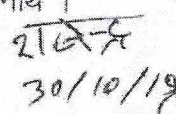 राजेन्द्र
30/10/19